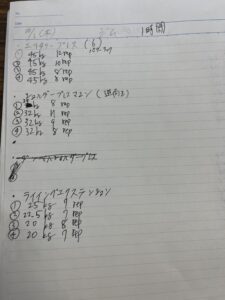 (木) 1時間
プレス (6)
① 45kg 12rep
② 45kg 10rep
③ 45kg 8rep
④ 45kg 8rep
・ショルダープレスマシン
① 8 rep
② 32kg 11 rep
③ 32kg 9 rep
④ 32kg 8 rep
・ライイングエクステンション
① 25 kg 9 rep
② 22.5 kg 7 rep
③ 20 kg 8 rep
④ 20 kg 7 rep